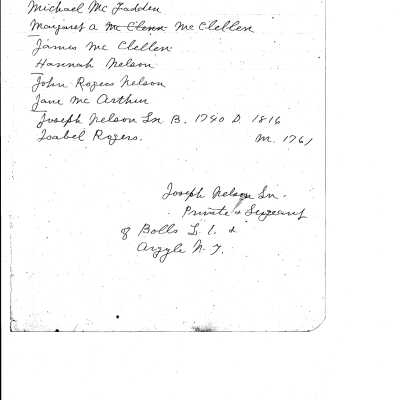 Michael Mc Fadden
Margaret A Mc Clenn Mc Clellen
James Mc Clellen
Hannah Nelson
John Rogers Nelson
Jane Mc Arthur
Joseph Nelson Sn B. 1740 D. 1816
Isabel Rogers. M. 1761
Joseph Nelson Sn.
Private & Sergeant
of Bolls L. I. &
Argyle N. Y.